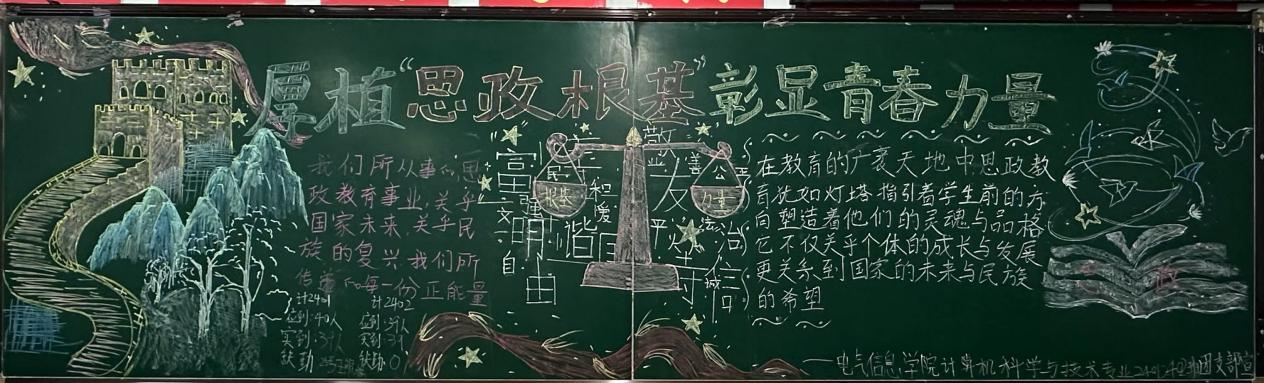 厚植“思政根基”彰显青春力量
我们所从事的思
政教育事业,关乎
国家未来,关乎民
族的复兴,我们所
传递的每一份正能量
计2401 计2402
应到:40人 应到:39人
实到:39人 实到:39人
缺勤 缺勤 0
富强
民主
文明
和谐
自由
平等
公正
法治
爱国
敬业
诚信
友善
根基
力量
在教育的广袤天地中思政教
育犹如灯塔指引着学生前的方
向塑造着他们的灵魂与品格
它不仅关乎个体的成长与发展
更关乎到国家的未来与民族
的希望
——电气信息学院计算机科学与技术专业2401,2402班团支部宣